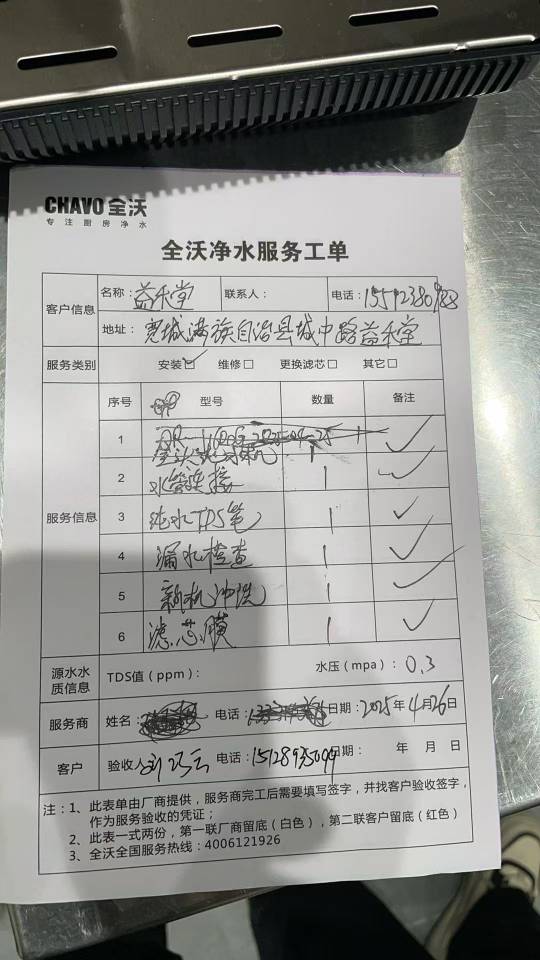 CHAVO 全沃
专注厨房净水
全沃净水服务工单
客户信息 名称：益禾堂 联系人： 电话：15512380988
地址：宽城满族自治县城中路益禾堂
服务类别 安装☑ 维修□ 更换滤芯□ 其它□
服务信息
序号 型号 数量 备注
1 1 ✓
2 水管连接 1 ✓
3 纯水TDS笔 1 ✓
4 漏水检查 1 ✓
5 新机冲洗 1 ✓
6 滤芯膜 1 ✓
源水水质信息 TDS值（ppm）： 水压（mpa）：0.3
服务商 姓名： 电话： 日期：2025年4月26日
客户 验收人 电话： 日期： 年 月 日
注：1、此表单由厂商提供，服务商完工后需要填写签字，并找客户验收签字，
作为服务验收的凭证；
2、此表一式两份，第一联厂商留底（白色），第二联客户留底（红色）
3、全沃全国服务热线：4006121926